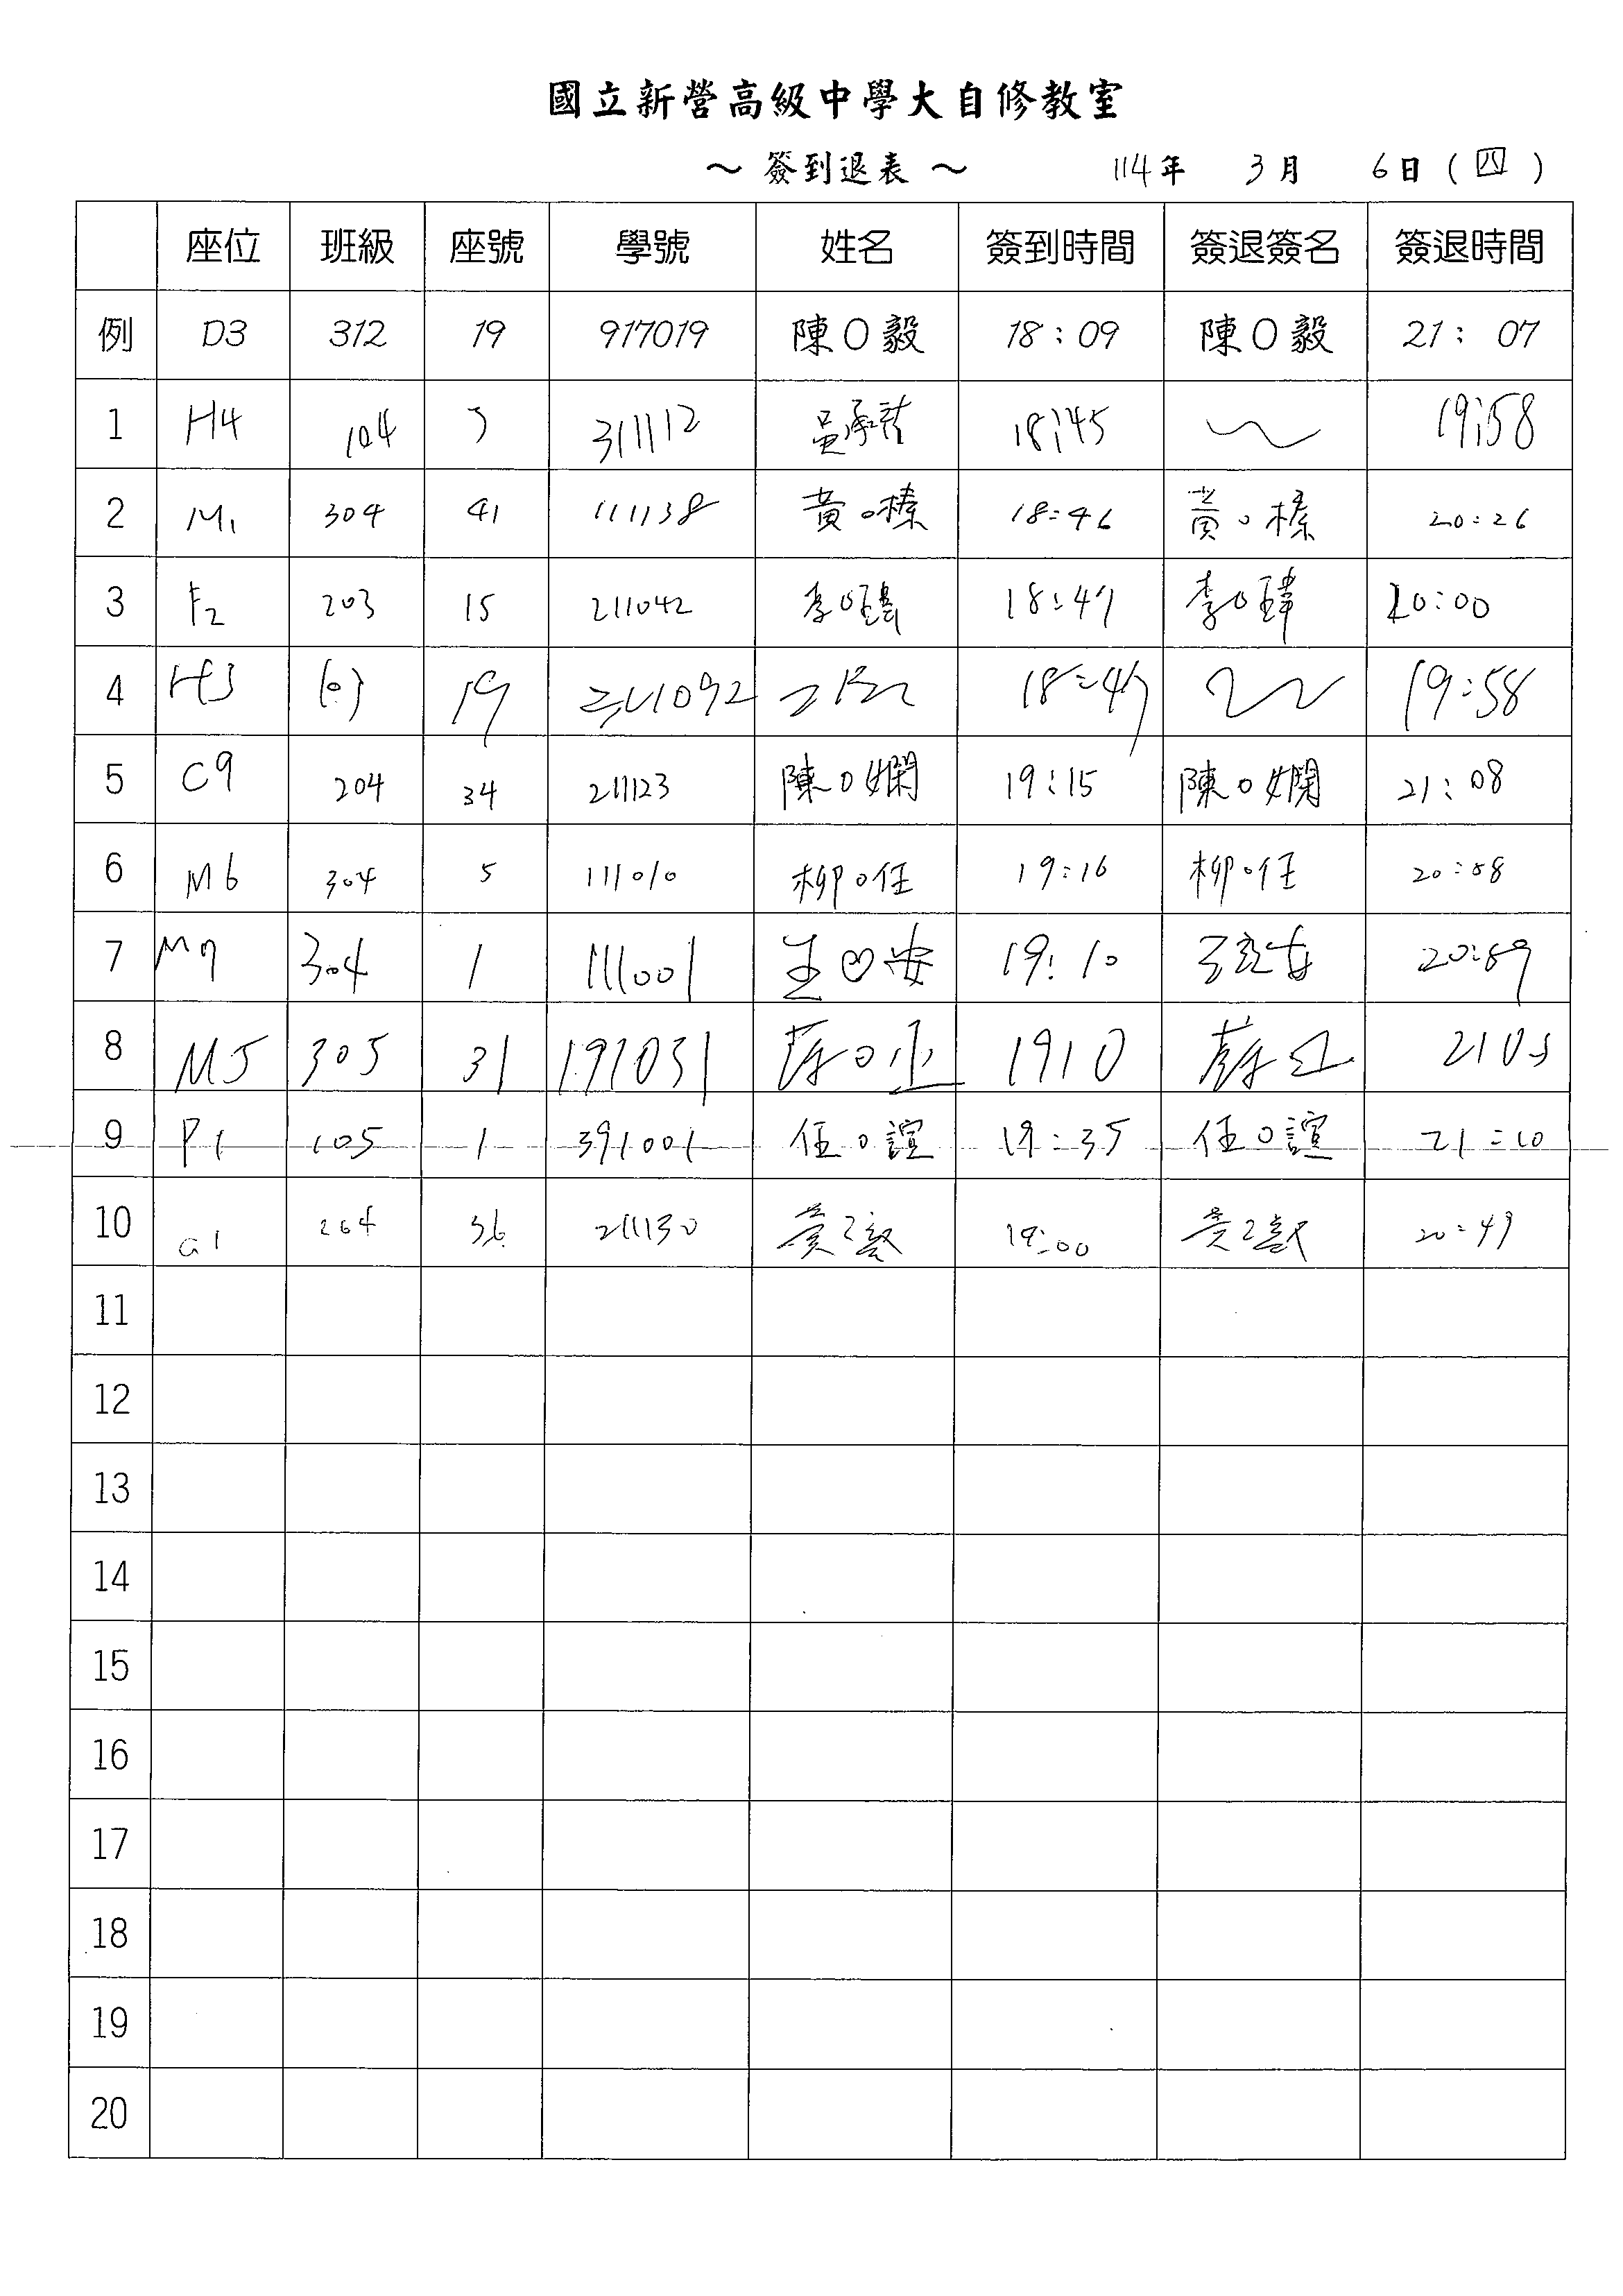 國立新營高級中學大自修教室
～ 簽到退表 ～ 114年 3月 6日 (四)
座位 班級 座號 學號 姓名 簽到時間 簽退簽名 簽退時間
例 D3 312 19 917019 陳O毅 18:09 陳O毅 21:07
1 H4 104 311112 18:45 19:58
2 M1 304 41 111138 黃O榛 18:46 黃O榛 20:26
3 F2 203 15 211042 李O 18:47 李O瑋 20:00
4 H3 103 19 18:47 19:58
5 C9 204 34 211123 陳O嫻 19:15 陳O嫻 21:08
6 M6 304 5 111010 柳O任 19:16 柳O任 20:58
7 M7 304 1 111001 王O安 19:10 20:59
8 M5 305 31 191031 1910 2105
9 P1 105 1 391001 任O誼 19:35 任O誼 21:10
10 G1 204 36 211130 黃 19:00 黃 20:49
11
12
13
14
15
16
17
18
19
20